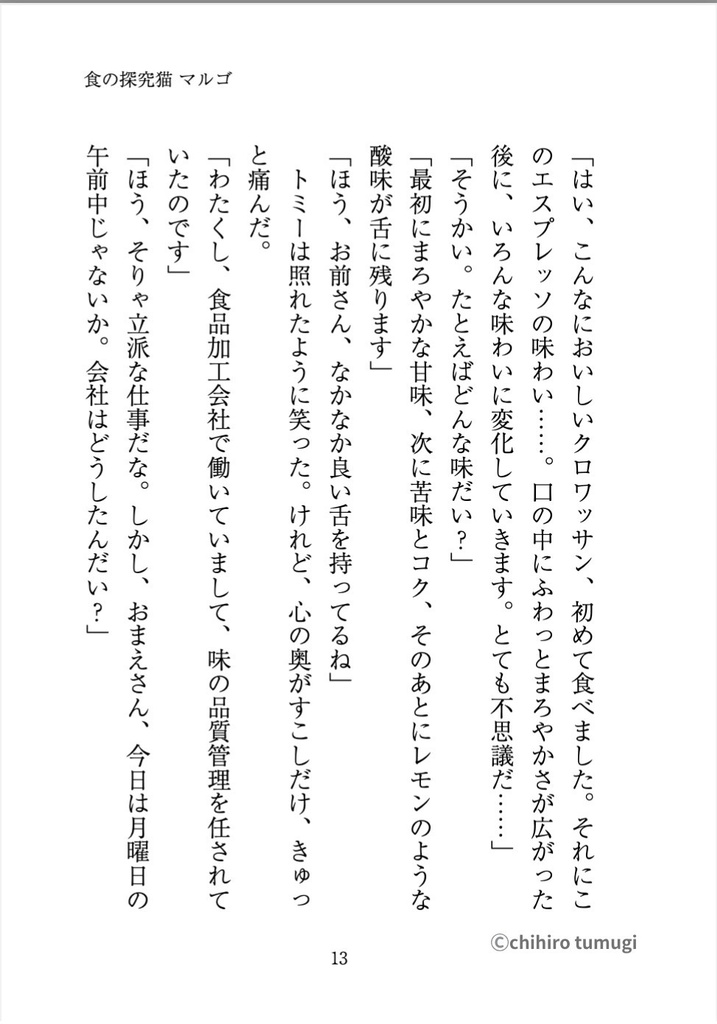 食の探究猫 マルゴ
「はい、こんなにおいしいクロワッサン、初めて食べました。それにこ
のエスプレッソの味わい……。口の中にふわっとまろやかさが広がった
後に、いろんな味わいに変化していきます。とても不思議だ……」
「そうかい。たとえばどんな味だい？」
「最初にまろやかな甘味、次に苦味とコク、そのあとにレモンのような
酸味が舌に残ります」
「ほう、お前さん、なかなか良い舌を持ってるね」
トミーは照れたように笑った。けれど、心の奥がすこしだけ、きゅっ
と痛んだ。
「わたくし、食品加工会社で働いていまして、味の品質管理を任されて
いたのです」
「ほう、そりゃ立派な仕事だな。しかし、おまえさん、今日は月曜日の
午前中じゃないか。会社はどうしたんだい？」
©chihiro tumugi
13